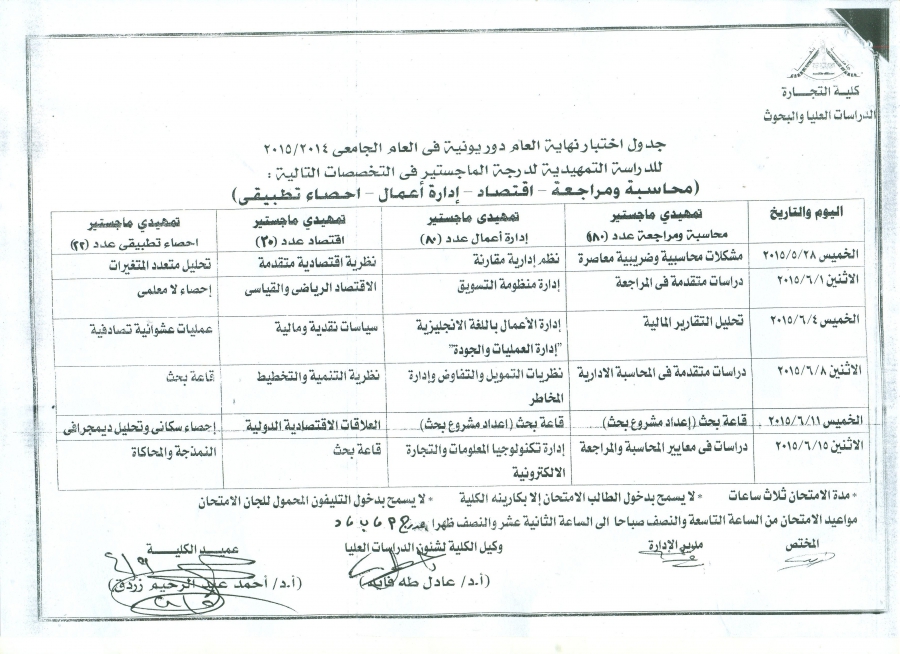 كلية التجارة
الدراسات العليا والبحوث
جدول اختبار نهاية العام دور يونية في العام الجامعى ٢٠١٥/٢٠١٤
للدراسة التمهيدية لدرجة الماجستير فى التخصصات التالية :
(محاسبة ومراجعة - اقتصاد - إدارة أعمال - احصاء تطبيقى)
اليوم والتاريخ تمهيدي ماجستير محاسبة ومراجعة عدد (١٨٠) تمهيدى ماجستير إدارة أعمال عدد (٨٠) تمهيدي ماجستير اقتصاد عدد (٣٠) تمهيدي ماجستير احصاء تطبيقى عدد (٢٢)
الخميس ٢٠١٥/٥/٢٨ مشكلات محاسبية وضريبية معاصرة نظم إدارية مقارنة نظرية اقتصادية متقدمة تحليل متعدد المتغيرات
الاثنين ٢٠١٥/٦/١ دراسات متقدمة فى المراجعة إدارة منظومة التسويق الاقتصاد الرياضى والقياسى إحصاء لا معلمى
الخميس ٢٠١٥/٦/٤ تحليل التقارير المالية إدارة الأعمال باللغة الانجليزية "إدارة العمليات والجودة" سياسات نقدية ومالية عمليات عشوائية تصادفية
الاثنين ٢٠١٥/٦/٨ دراسات متقدمة فى المحاسبة الادارية نظريات التمويل والتفاوض وإدارة المخاطر نظرية التنمية والتخطيط قاعة بحث
الخميس ٢٠١٥/٦/١١ قاعة بحث (إعداد مشروع بحث) قاعة بحث (اعداد مشروع بحث) العلاقات الاقتصادية الدولية إحصاء سكانى وتحليل ديمجرافى
الاثنين ٢٠١٥/٦/١٥ دراسات فى معايير المحاسبة والمراجعة إدارة تكنولوجيا المعلومات والتجارة الالكترونية قاعة بحث النمذجة والمحاكاة
* مدة الامتحان ثلاث ساعات * لا يسمح بدخول الطالب الامتحان إلا بكارنيه الكلية * لا يسمح بدخول التليفون المحمول للجان الامتحان
مواعيد الامتحان من الساعة التاسعة والنصف صباحا الى الساعة الثانية عشر والنصف ظهرا
المختص مدير الإدارة وكيل الكلية لشئون الدراسات العليا عميد الكلية
(أ.د/ عادل طه فايد) (أ.د/ أحمد عبد الرحيم زردق)